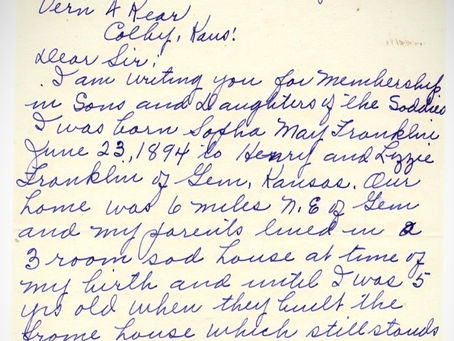 Vern A Kear
Colby, Kans!
Dear Sir!
I am writing you for membership
in Sons and Daughters of the Soddies
I was born Sopha May Franklin
June 23, 1894 to Henry and Lizzie
Franklin of Gem, Kansas. Our
home was 6 miles N.E of Gem
and my parents lived in a
3 room sod house at time of
my birth and until I was 5
yrs old when they built the
frome house which still stands